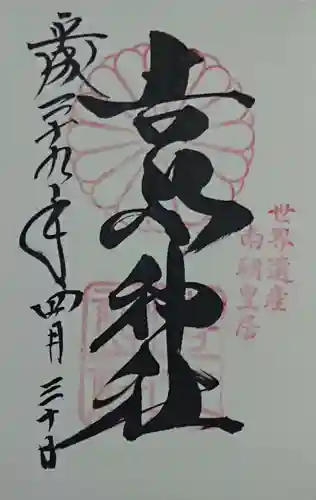 世界遺産
南朝皇居
吉水神社
平成二十九年四月三十日